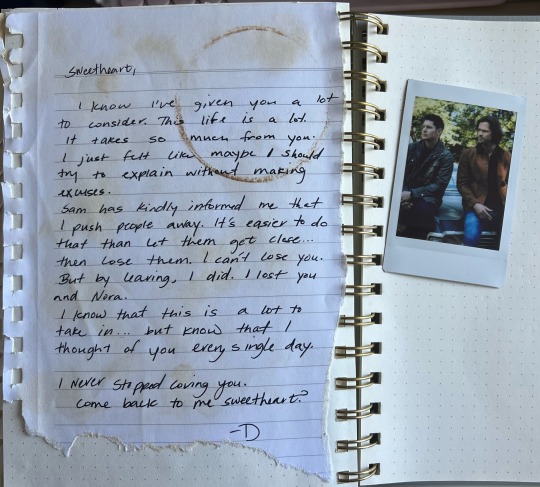 Sweetheart,
I know I've given you a lot
to consider. This life is a lot.
It takes so much from you.
I just felt like maybe I should
try to explain without making
excuses.
Sam has kindly informed me that
I push people away. It's easier to do
that than let them get close...
then lose them. I can't lose you.
But by leaving, I did. I lost you
and Nora.
I know that this is a lot to
take in... but know that I
thought of you every single day.
I never stopped loving you.
Come back to me sweetheart?
-D